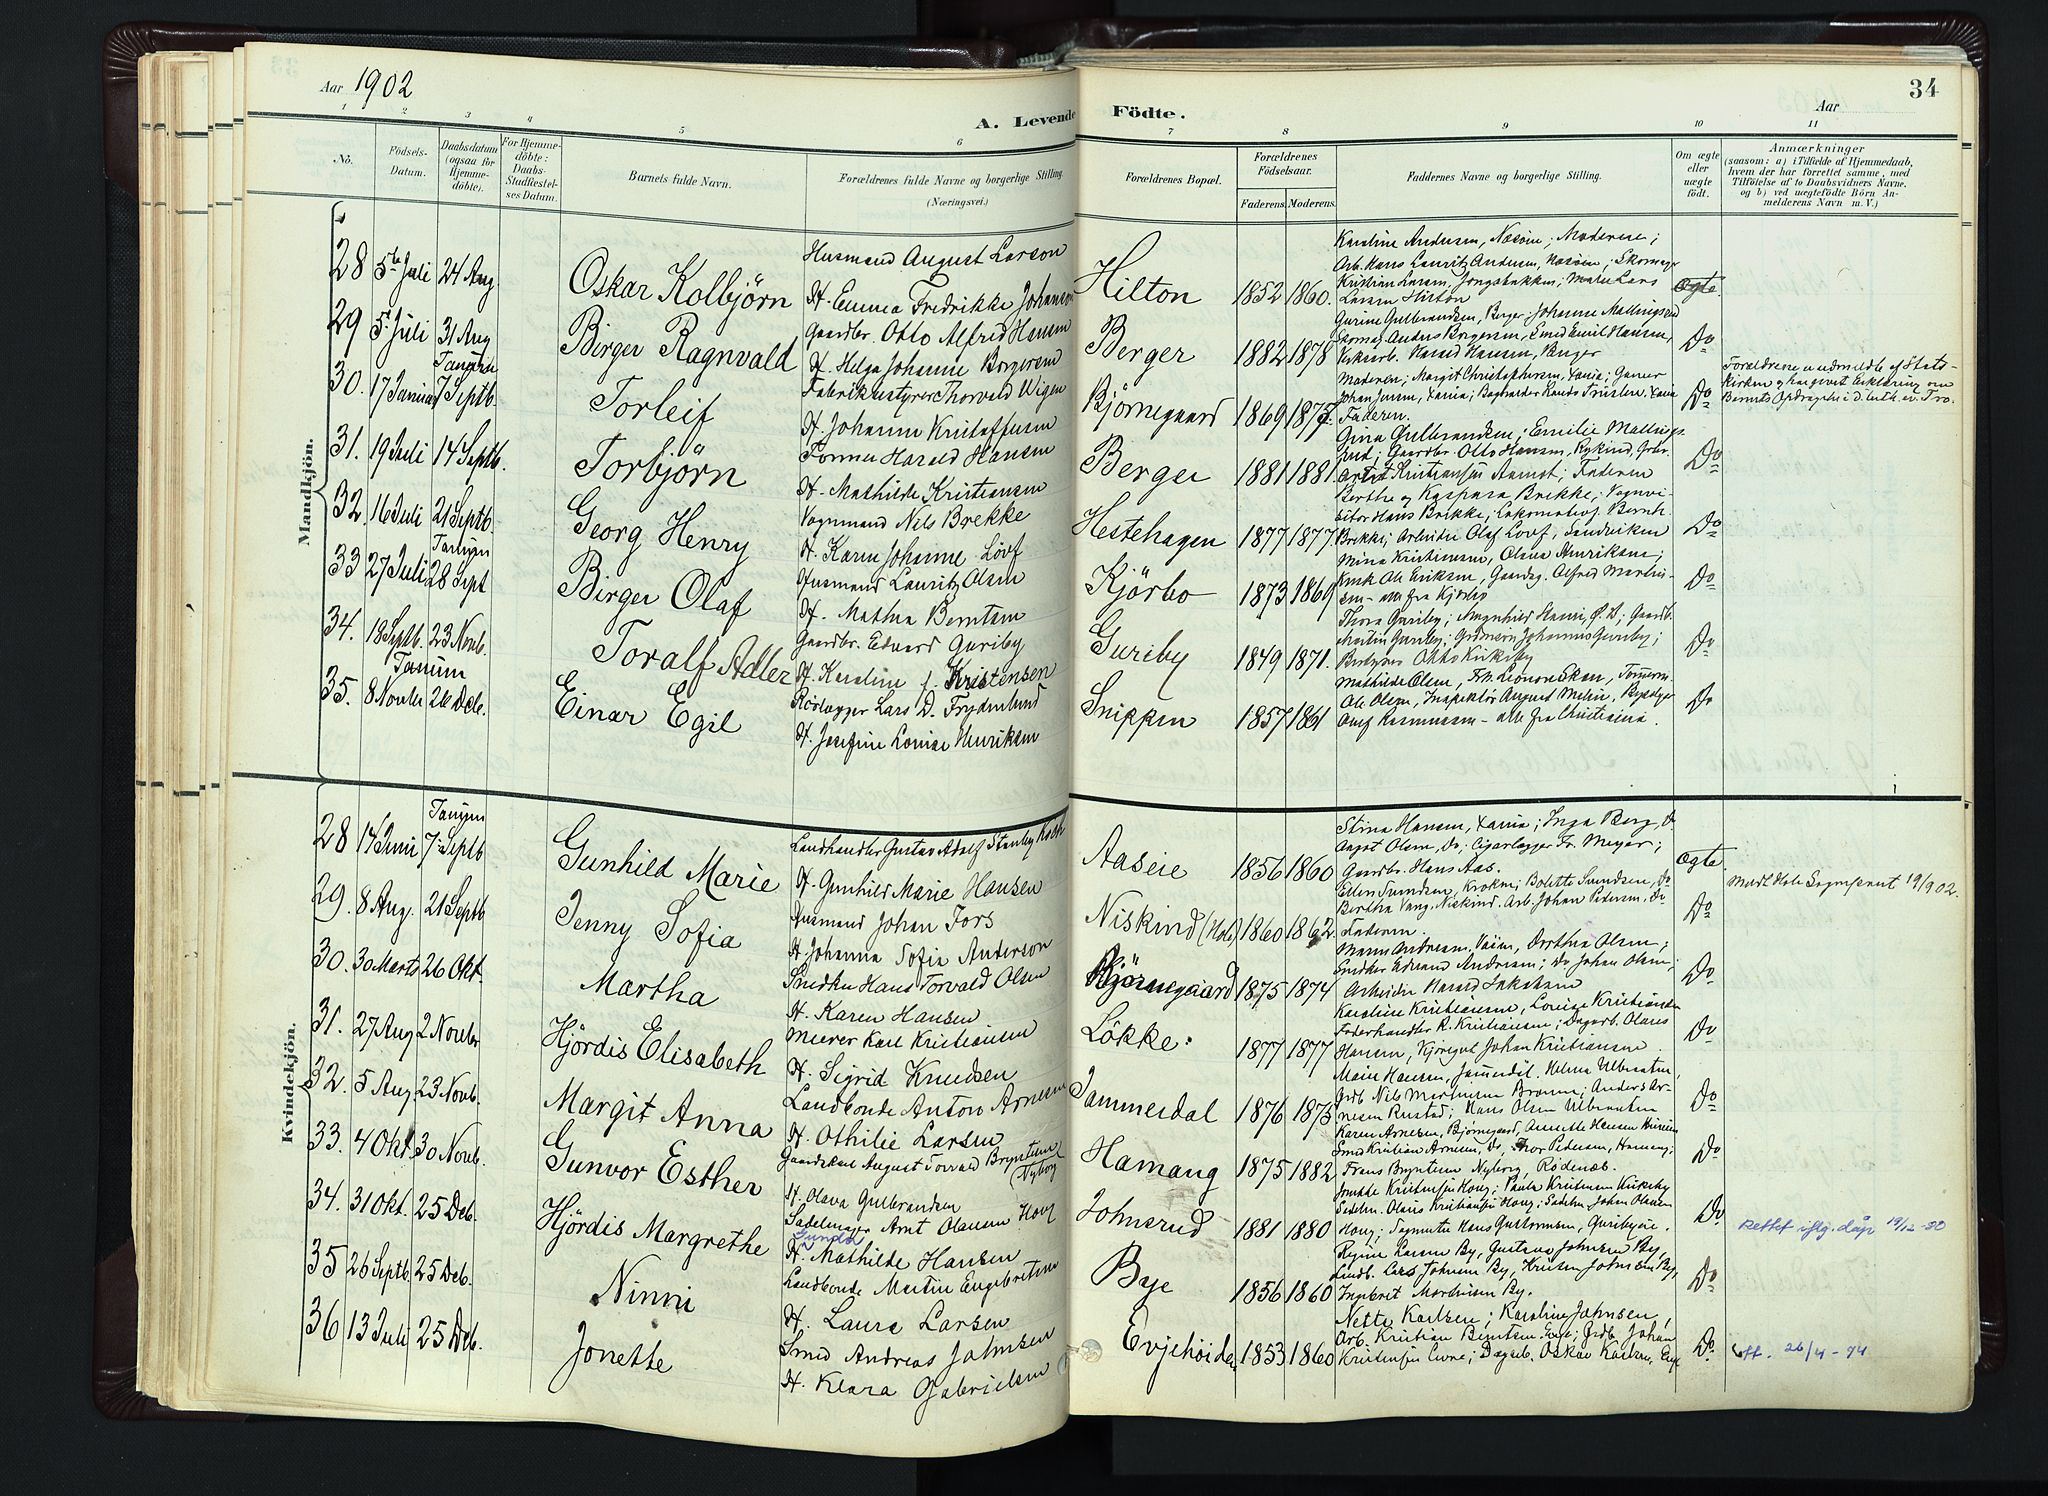 Aar 1902
A. Levende Födte.
Aar
34
1 2 3 4 5 6 7 8 9 10 11
No.
Födsels-Datum.
Daabsdatum (ogsaa for Hjemme-döbte).
For Hjemme-döbte: Daabs-Stadfæstel-ses Datum.
Barnets fulde Navn.
Forældrenes fulde Navne og borgerlige Stilling. (Næringsvei.)
Forældrenes Bopæl.
Forældrenes Födselsaar.
Faderens. Moderens.
Faddernes Navne og borgerlige Stilling.
Om ægte eller uægte födt.
Anmærkninger
(saasom: a) i Tilfælde af Hjemmedaab,
hvem der har forrettet samme, med
Tilföielse af to Daabsvidners Navne,
og b) ved uægtefödte Börn An-
melderens Navn m. V.)
Mandkjön.
28 5te Juli 24 Aug Oskar Kolbjörn
Husmand August Larson
H. Emma Fredrikke Johanson
Hilton 1852 1860.
Karoline Andersen, Næsöen; Moderen;
Arb. Hans Lauritz Andersen, Næsöen; Skomager
Kristian Larsen, Jongsbakken;
Larsen Hilton
Ægte
29 5 Juli 31 Aug Birger Ragnvald
Gaardbr. Otto Alfred Hansen
H. Helga Johanne Borgersen
Berger 1882 1878
Gurine Gulbrandsen, Berger; Johanne Mallingsrud
Skomag. Anders Borgersen, Smed Emil Hansen,
Harald Hansen, Berger
Do
30. 17 Januar Tanum 7 Septb. Torleif
Fabrikbestyrer Thorvald Wigen
H. Johanne Kristoffersen
Bjørnegaard 1869 1877
Moderen; Margit Christophersen, Xania; Gunner
Johan Jensen, Xania; Xania
Faderen.
Do
Forældrene er udmeldte af Stats-
kirken og har givet Erklæring om
Barnets Opdragelse i d. luth. ev. Tro.
31. 19 Juli 14 Septb. Torbjörn
Former Harald Hansen
H. Mathilde Kristiansen
Berger 1881 1881.
Gina Gulbrandsen; Emilie Mallings-
rud; Gaardbr. Otto Hansen, Rykind,
Kristiansen Aamot; Faderen
Do
32 16 Juli 21 Septb. Georg Henry
Vognmand Nils Brekke
H. Karen Johanne Lövf
Hestehagen 1877 1877
Berthe og Kaspara Brekke; Vognvi-
sitør Hans Brekke; Lokomotivf. Bernh.
Brekke; Arbeider Olaf Lövf, Sandviken
Do
33 27 Juli Tanum 28 Sept Birger Olaf
Husmand Lauritz Olsen
H. Mathea Berntsen
Kjörbo 1873 1869
Mina Kristiansen, Olava Henriksen;
Kusk Ole Eriksen, Gaardsg. Alfred Martin-
sen - alle fra Kjörbo
Do
34. 18 Septb. 23 Novb. Toralf Adler
Gaardbr. Edvard Guriby
H. Karoline f. Kristensen
Guriby 1849 1871.
Thora Guriby; Ragnhild Hansen, Ø. D; Gaardb.
Martin Guriby; Grdmand Johannes Guriby;
Bestyrer Otto Kirkeby
Do
35. 8 Novbr Tanum 26 Dcb. Einar Egil
Rörlægger Lars D. Frydenlund
H. Josefine Lovise Henriksen
Snippen 1857 1861
Mathilde Olsen, Fr. Leonore Skau, Tömmerm.
Ole Olsen, Inspektör August Melin, Rörlægger
Olaf Rasmussen - alle fra Christiania.
Do
Kvindekjön.
28 14 Juni Tanum 7 Septb Gunhild Marie
Landhandler Gustav Adolf Stanley Koch
H. Gunhild Marie Hansen
Aaseie 1856 1860
Stina Hansen, Xania; Inga Berg, Do
August Olsen, Do; Cigarlægger Fr. Meyer;
Gaardbr. Hans Aas.
Ægte.
29. 8 Aug. 21 Septb Jenny Sofia
Husmand Johan Fors
H. Johanna Sofia Anderson
Niskind (Hole) 1860 1862.
Ellen Svendsen, Kroken; Bolette Svendsen, Do
Bertha Vang, Niskind, Arb. Johan Pedersen, Do
Faderen.
Do
Meldt Hole Sogneprest 19/9 02.
30. 30 Marts 26 Okt. Martha
Snedker Hans Torvald Olsen
H. Karen Hansen
Bjørnegaard 1875 1874
Andresen, Væien, Dorthea Olsen;
Snedker Edvand Andresen; Do Johan Olsen;
Arbeider Harald Jakobsen
Do
31. 27 Aug 2 Novbr Hjördis Elisabeth
Murer Karl Kristiansen
H. Sigrid Knudsen
Løkke. 1877 1877
Karoline Kristiansen, Lovise Kristiansen
Foderhandler R. Kristiansen; Dagarb. Olaus
Hansen, Kjöregut Johan Kristiansen.
Do
32. 5 Aug. 23 Novb. Margit Anna
Landbonde Anton Arnesen
H. Othilie Larsen
Jammerdal 1876 1875
Marie Hansen, Jammerdal, Helma Ulbraaten,
Grdb Nils Martinsen Brænne; Anders Ar-
nesen Rustad; Hans Olsen Ulbraaten
Do
33. 4 Okt 30 Novb. Gunvor Esther
Gaardskarl August Torvald Bryntesen (Nyborg)
H. Olava Gulbrandsen
Hamang 1875 1882
Karen Arnesen, Bjørnegaard, Annette Hansen
Smed Kristian Arnesen, Do, Thor Pedersen, Hamang;
Frans Bryntesen Nyborg, Rødenæs.
Do
34. 31 Okt. 25 Deb. Hjördis Margrethe
Sadelmager Arnt Olausen Houg
H. Gunda Mathilde Hansen
Johnsrud 1881 1880
Kristensen Houg; Paula Kristensen Kirkeby
Sadelm. Olaus Kristiansen Houg; Sadelm Johan Olausen
Houg; Hans Gustavsen, Guribyeie.
Do
Rettet iflg. dåp 19/12-80
35 26 Septb. 25 Deb. Ninni
Landbonde Martin Engebretsen
H. Laura Larsen
Bye 1856 1860
Regine Larsen By, Gustava Johnsen By,
Landb. Lars Johnsen By, Kristen Johnsen By,
Ingebret Martinsen By.
Do
36 13 Juli 25 Deb. Jonette
Smed Andreas Johnsen
H. Klara Gabrielsen
Evjehöiden 1853 1860
Netta Karlsen; Karoline Johnsen,
Arb. Kristian Berntsen Evje; Grdb. Johan
Kristensen Evne; Dagarb. Oskar Karlsen, Evje
Do
att. 26/4-74